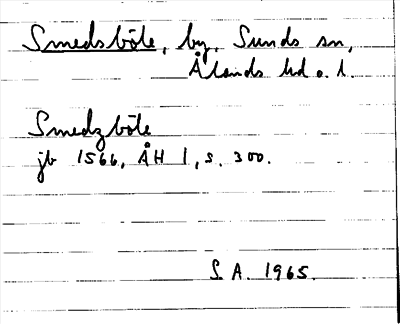 Smedsböte, by, Sunds sn,
Ålands hd o. l.
Smedzböte
jb 1566, ÅH 1, s. 300.
S. A. 1965.